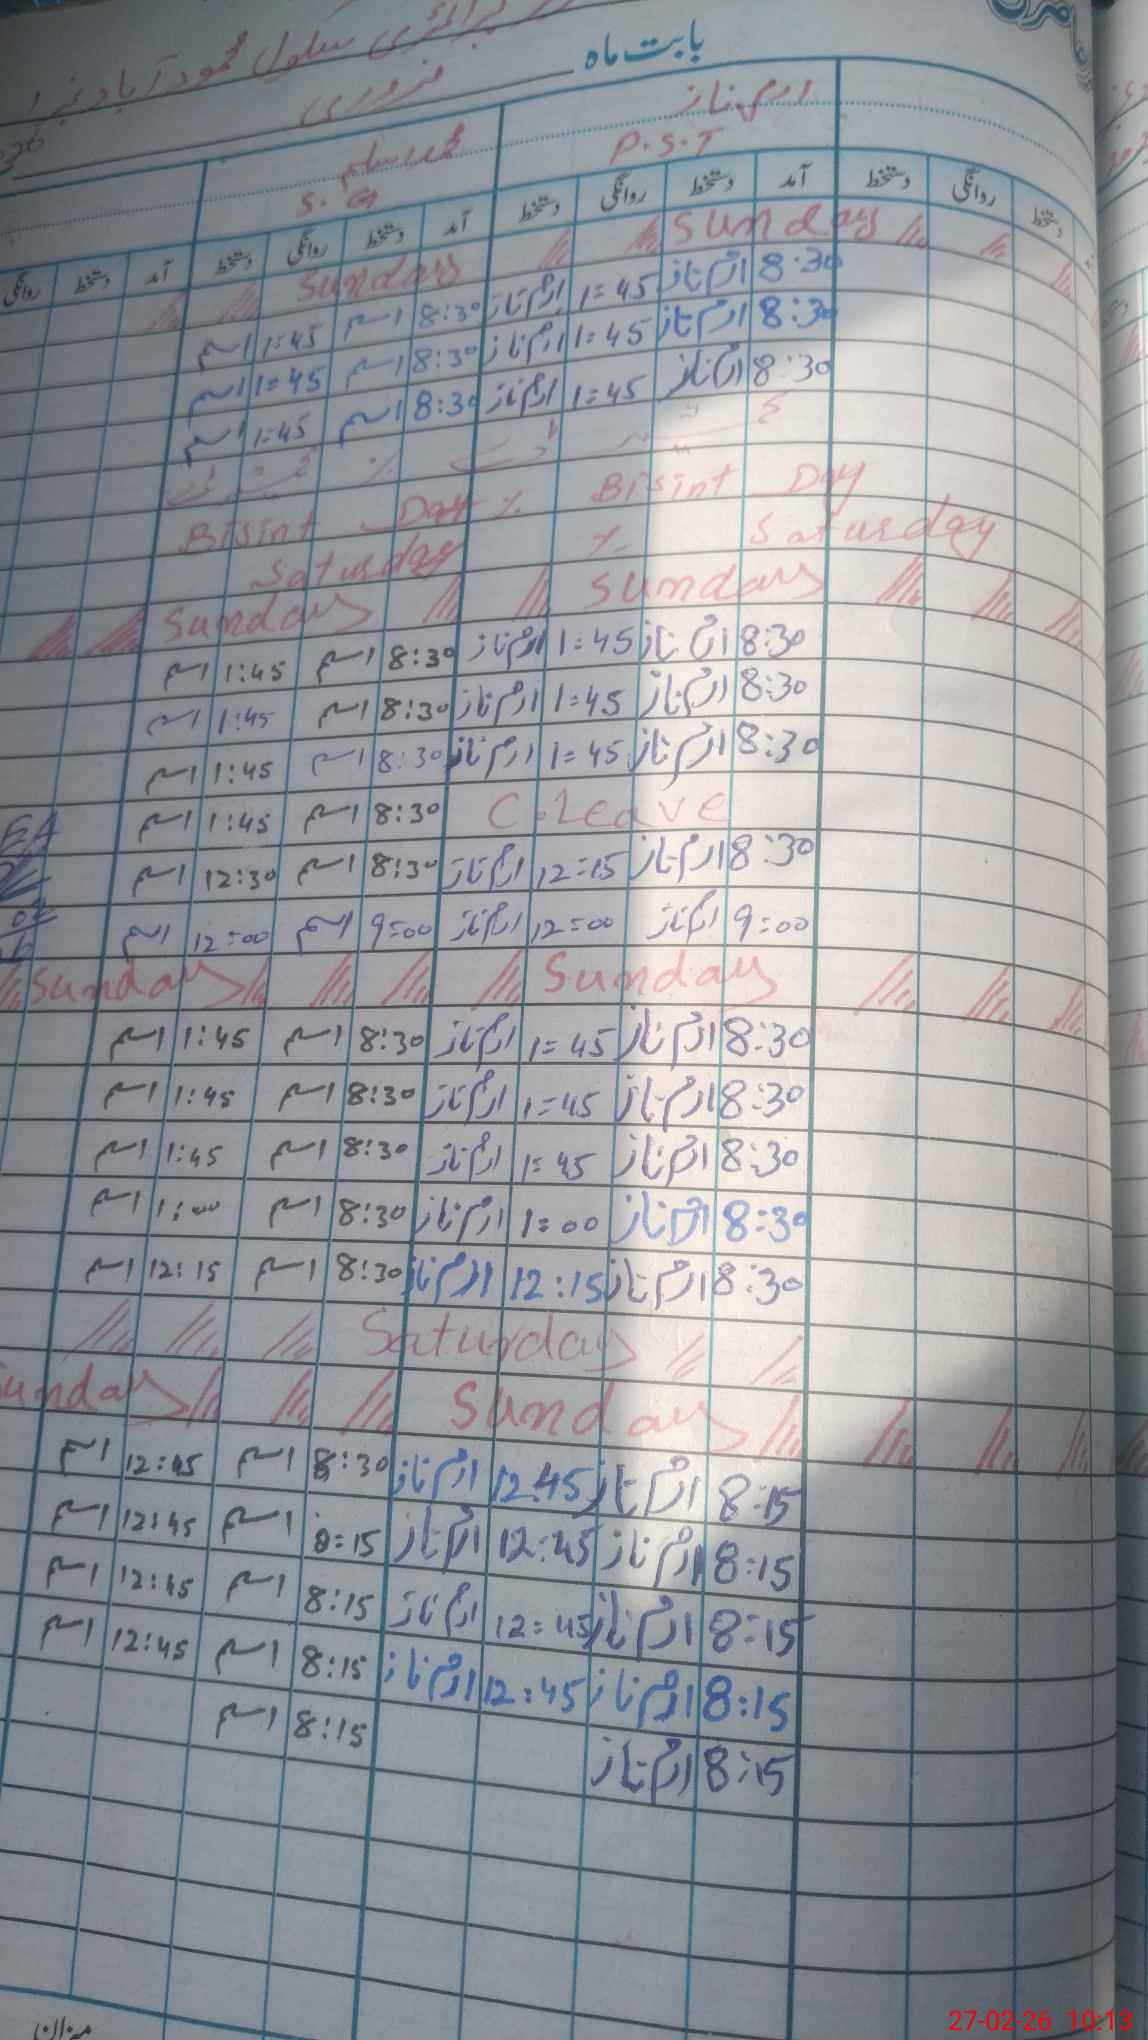 پرائمری سکول محمود آباد نمبر 1
بابت ماہ فروری
ارم ناز
P.S.T
محمد اسلم
S.G
آمد دستخط روانگی دستخط آمد دستخط روانگی دستخط آمد دستخط روانگی
دستخط روانگی دستخط
Sunday Sunday
8:30 ارم ناز 1:45 ارم ناز 8:30 اسلم 1:45 اسلم
8:30 ارم ناز 1:45 ارم ناز 8:30 اسلم 1:45 اسلم
8:30 ارم ناز 1:45 ارم ناز 8:30 اسلم 1:45 اسلم
Bisint Day % Bisint Day
Saturday % Saturday
Sunday Sunday
8:30 ارم ناز 1:45 ارم ناز 8:30 اسلم 1:45 اسلم
8:30 ارم ناز 1:45 ارم ناز 8:30 اسلم 1:45 اسلم
8:30 ارم ناز 1:45 ارم ناز 8:30 اسلم 1:45 اسلم
C.Leave 8:30 اسلم 1:45 اسلم
8:30 ارم ناز 12:15 ارم ناز 8:30 اسلم 12:30 اسلم
9:00 ارم ناز 12:00 ارم ناز 9:00 اسلم 12:00 اسلم
Sunday Sunday
8:30 ارم ناز 1:45 ارم ناز 8:30 اسلم 1:45 اسلم
8:30 ارم ناز 1:45 ارم ناز 8:30 اسلم 1:45 اسلم
8:30 ارم ناز 1:45 ارم ناز 8:30 اسلم 1:45 اسلم
8:30 ارم ناز 1:00 ارم ناز 8:30 اسلم 1:00 اسلم
8:30 ارم ناز 12:15 ارم ناز 8:30 اسلم 12:15 اسلم
Saturday
Sunday Sunday
8:15 ارم ناز 12:45 ارم ناز 8:30 اسلم 12:45 اسلم
8:15 ارم ناز 12:45 ارم ناز 8:15 اسلم 12:45 اسلم
8:15 ارم ناز 12:45 ارم ناز 8:15 اسلم 12:45 اسلم
8:15 ارم ناز 12:45 ارم ناز 8:15 اسلم 12:45 اسلم
8:15 ارم ناز 8:15 اسلم
میزان
27-02-26 10:13